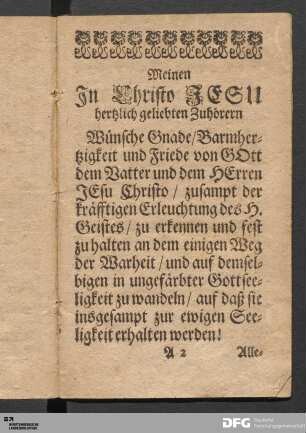 Meinen
In Christo JESU
hertzlich geliebten Zuhörern
Wünsche Gnade/Barmher-
tzigkeit und Friede von GOtt
dem Vatter und dem HErren
JEsu Christo / zusampt der
kräfftigen Erleuchtung des H.
Geistes / zu erkennen und fest
zu halten an dem einigen Weg
der Warheit / und auf demsel-
bigen in ungefärbter Gottsee-
ligkeit zu wandeln / auf daß sie
insgesampt zur ewigen See-
ligkeit erhalten werden!
A 2 Alle-
WÜRTTEMBERGISCHE
LANDESBIBLIOTHEK
DFG Deutsche
Forschungsgemeinschaft